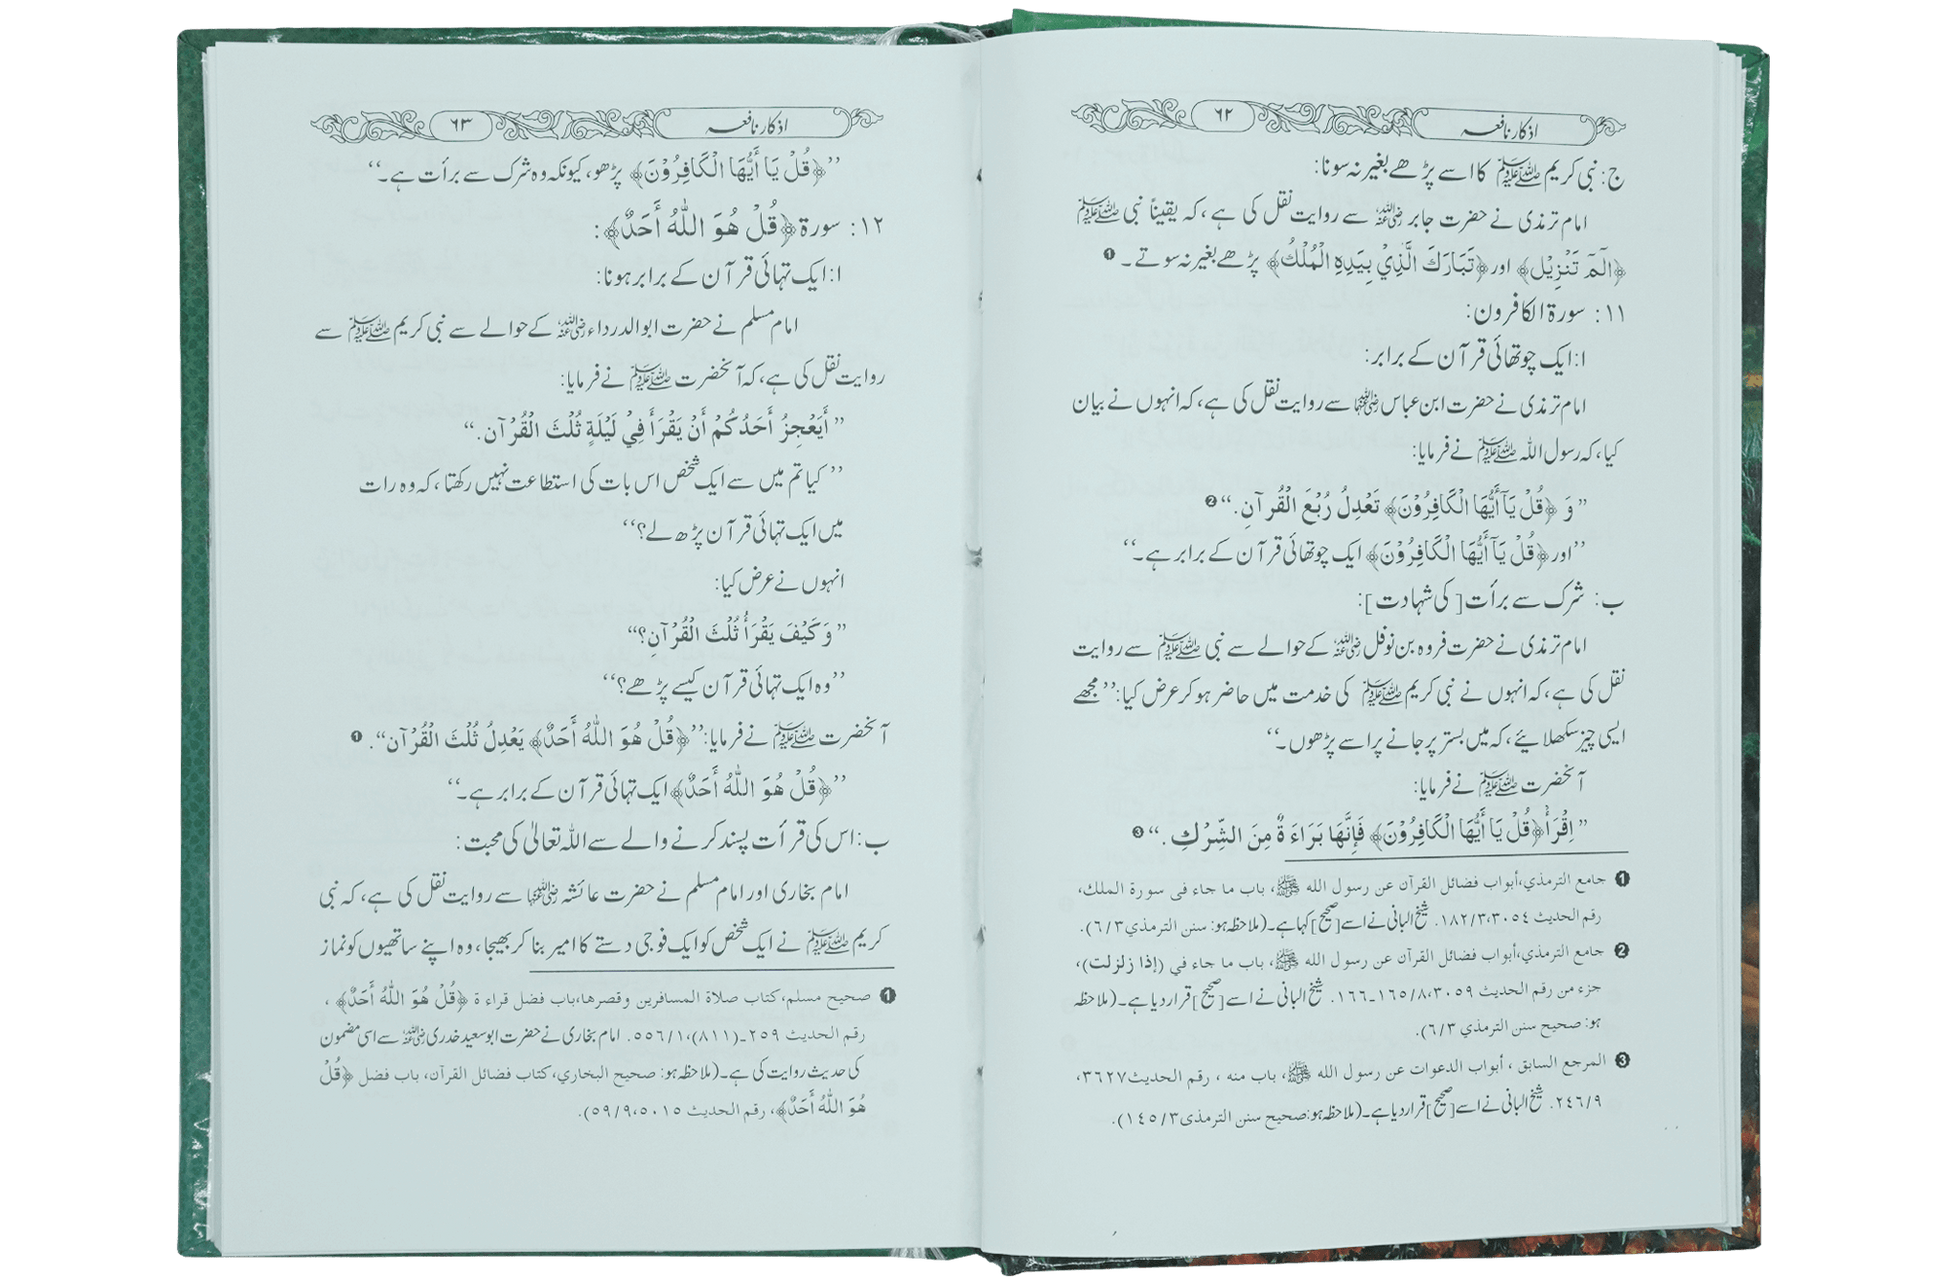 اذکار نافعہ ۶۲
ج: نبی کریم ﷺ کا اسے پڑھے بغیر نہ سونا:
امام ترمذی نے حضرت جابر رضی اللہ عنہ سے روایت نقل کی ہے، کہ یقیناً نبی ﷺ
﴿الٓمٓ تَنْزِيْل﴾ اور ﴿تَبَارَكَ الَّذِيْ بِيَدِهِ الْمُلْكُ﴾ پڑھے بغیر نہ سوتے۔ ❶
۱۱: سورۃ الکافرون:
ا: ایک چوتھائی قرآن کے برابر:
امام ترمذی نے حضرت ابن عباس رضی اللہ عنہما سے روایت نقل کی ہے، کہ انہوں نے بیان
کیا، کہ رسول اللہ ﷺ نے فرمایا:
”وَ ﴿قُلْ يَآ أَيُّهَا الْكَافِرُوْنَ﴾ تَعْدِلُ رُبْعَ الْقُرآنِ.“ ❷
’’اور ﴿قُلْ يَآ أَيُّهَا الْكَافِرُوْنَ﴾ ایک چوتھائی قرآن کے برابر ہے۔‘‘
ب: شرک سے برأت [کی شہادت]:
امام ترمذی نے حضرت فروہ بن نوفل رضی اللہ عنہ کے حوالے سے نبی ﷺ سے روایت
نقل کی ہے، کہ انہوں نے نبی کریم ﷺ کی خدمت میں حاضر ہو کر عرض کیا: ’’مجھے
ایسی چیز سکھلائیے، کہ میں بستر پر جانے پر اسے پڑھوں۔‘‘
آنحضرت ﷺ نے فرمایا:
”اِقْرَأْ ﴿قُلْ يَا أَيُّهَا الْكَافِرُوْنَ﴾ فَإِنَّهَا بَرَاءَةٌ مِنَ الشِّرْكِ.“ ❸
❶ جامع الترمذي، أبواب فضائل القرآن عن رسول الله ﷺ، باب ما جاء فى سورة الملك،
رقم الحديث ۳۰۵۴، ۱۸۲/۳. شیخ البانی نے اسے [صحیح] کہا ہے۔ (ملاحظہ ہو: سنن الترمذي ۶/۳).
❷ جامع الترمذي، أبواب فضائل القرآن عن رسول الله ﷺ، باب ما جاء في (إذا زلزلت)،
جزء من رقم الحديث ۳۰۵۹، ۱۶۵/۸۔۱۶۶. شیخ البانی نے اسے [صحیح] قرار دیا ہے۔ (ملاحظہ
ہو: صحيح سنن الترمذي ۶/۳).
❸ المرجع السابق، أبواب الدعوات عن رسول الله ﷺ، باب منه، رقم الحديث ۳۶۲۷،
۲۴۶/۹. شیخ البانی نے اسے [صحیح] قرار دیا ہے۔ (ملاحظہ ہو: صحيح سنن الترمذى ۱۴۵/۳).
اذکار نافعہ ۶۳
’’﴿قُلْ يَا أَيُّهَا الْكَافِرُوْنَ﴾ پڑھو، کیونکہ وہ شرک سے برأت ہے۔‘‘
۱۲: سورۃ ﴿قُلْ هُوَ اللّٰهُ أَحَدٌ﴾:
ا: ایک تہائی قرآن کے برابر ہونا:
امام مسلم نے حضرت ابوالدرداء رضی اللہ عنہ کے حوالے سے نبی کریم ﷺ سے
روایت نقل کی ہے، کہ آنحضرت ﷺ نے فرمایا:
”أَيَعْجِزُ أَحَدُكُمْ أَنْ يَقْرَأَ فِيْ لَيْلَةٍ ثُلْثَ الْقُرْآن.“
’’کیا تم میں سے ایک شخص اس بات کی استطاعت نہیں رکھتا، کہ وہ رات
میں ایک تہائی قرآن پڑھ لے؟‘‘
انہوں نے عرض کیا:
”وَكَيْفَ يَقْرَأُ ثُلْثَ الْقُرْآنِ؟“
’’وہ ایک تہائی قرآن کیسے پڑھے؟‘‘
آنحضرت ﷺ نے فرمایا: ’’﴿قُلْ هُوَ اللّٰهُ أَحَدٌ﴾ يَعْدِلُ ثُلْثَ الْقُرْآن“. ❶
’’﴿قُلْ هُوَ اللّٰهُ أَحَدٌ﴾ ایک تہائی قرآن کے برابر ہے۔‘‘
ب: اس کی قرأت پسند کرنے والے سے اللہ تعالیٰ کی محبت:
امام بخاری اور امام مسلم نے حضرت عائشہ رضی اللہ عنہا سے روایت نقل کی ہے، کہ نبی
کریم ﷺ نے ایک شخص کو ایک فوجی دستے کا امیر بنا کر بھیجا، وہ اپنے ساتھیوں کو نماز
❶ صحيح مسلم، كتاب صلاة المسافرين وقصرها، باب فضل قراءة ﴿قُلْ هُوَ اللّٰهُ أَحَدٌ﴾،
رقم الحديث ۲۵۹۔(۸۱۱)، ۵۵۶/۱. امام بخاری نے حضرت ابوسعید خدری رضی اللہ عنہ سے اسی مضمون
کی حدیث روایت کی ہے۔ (ملاحظہ ہو: صحيح البخاري، كتاب فضائل القرآن، باب فضل ﴿قُلْ
هُوَ اللّٰهُ أَحَدٌ﴾، رقم الحديث ۵۰۱۵، ۵۹/۹).